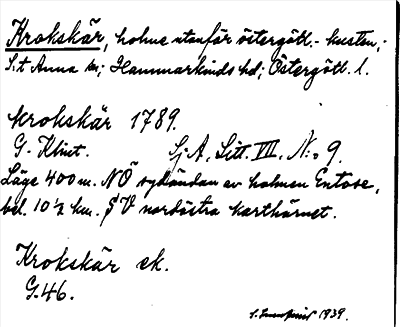 Krokskär, holme utanför östergötl.- kusten,-
S:t Anna sn; Hammarkinds hd; Östergötl. l.
Krokskär 1789.
G. Klint. Sj.A, Litt. VII. N:o 9.
Läge 400 m. NÖ sydändan av holmen Entose,
bel. 10 ½ km. SV nordöstra karthörnet.
Krokskär ek.
G.46.
1939.